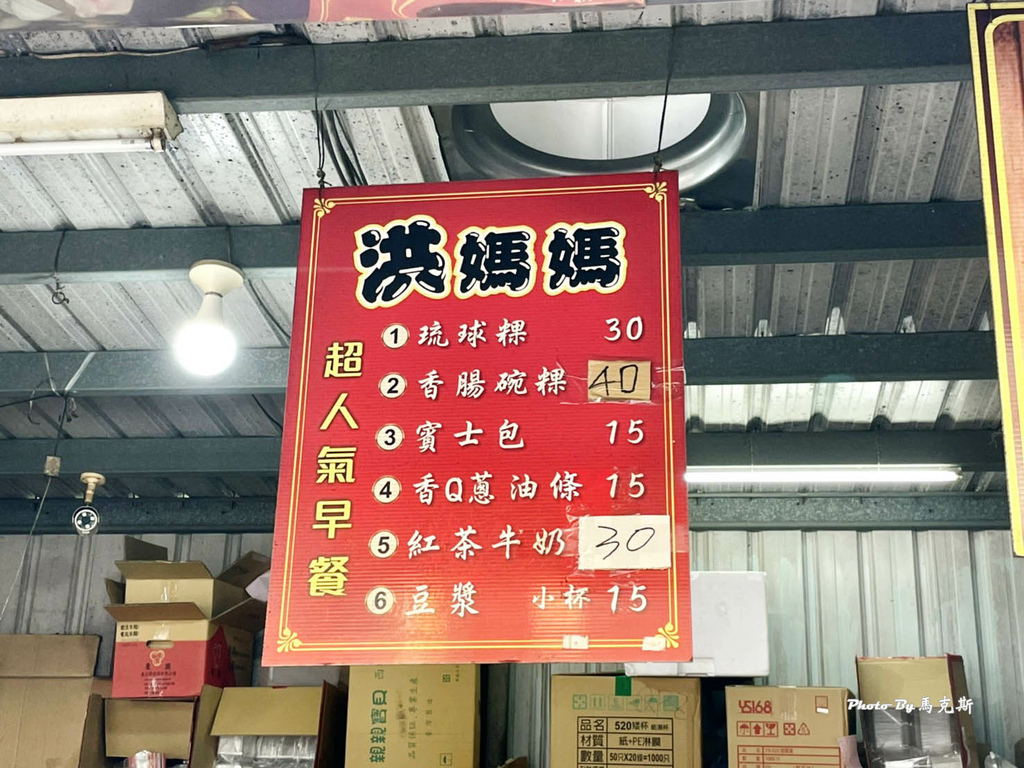 洪媽媽
超人氣早餐
1 琉球粿 30
2 香腸碗粿 40
3 寶士包 15
4 香Q蔥油條 15
5 紅茶牛奶 30
6 豆漿 小杯 15
親親寶貝
品名 520矮杯
材質 紙+PE淋膜
數量 50只X20條=1000只
YS168
Photo By 馬克斯